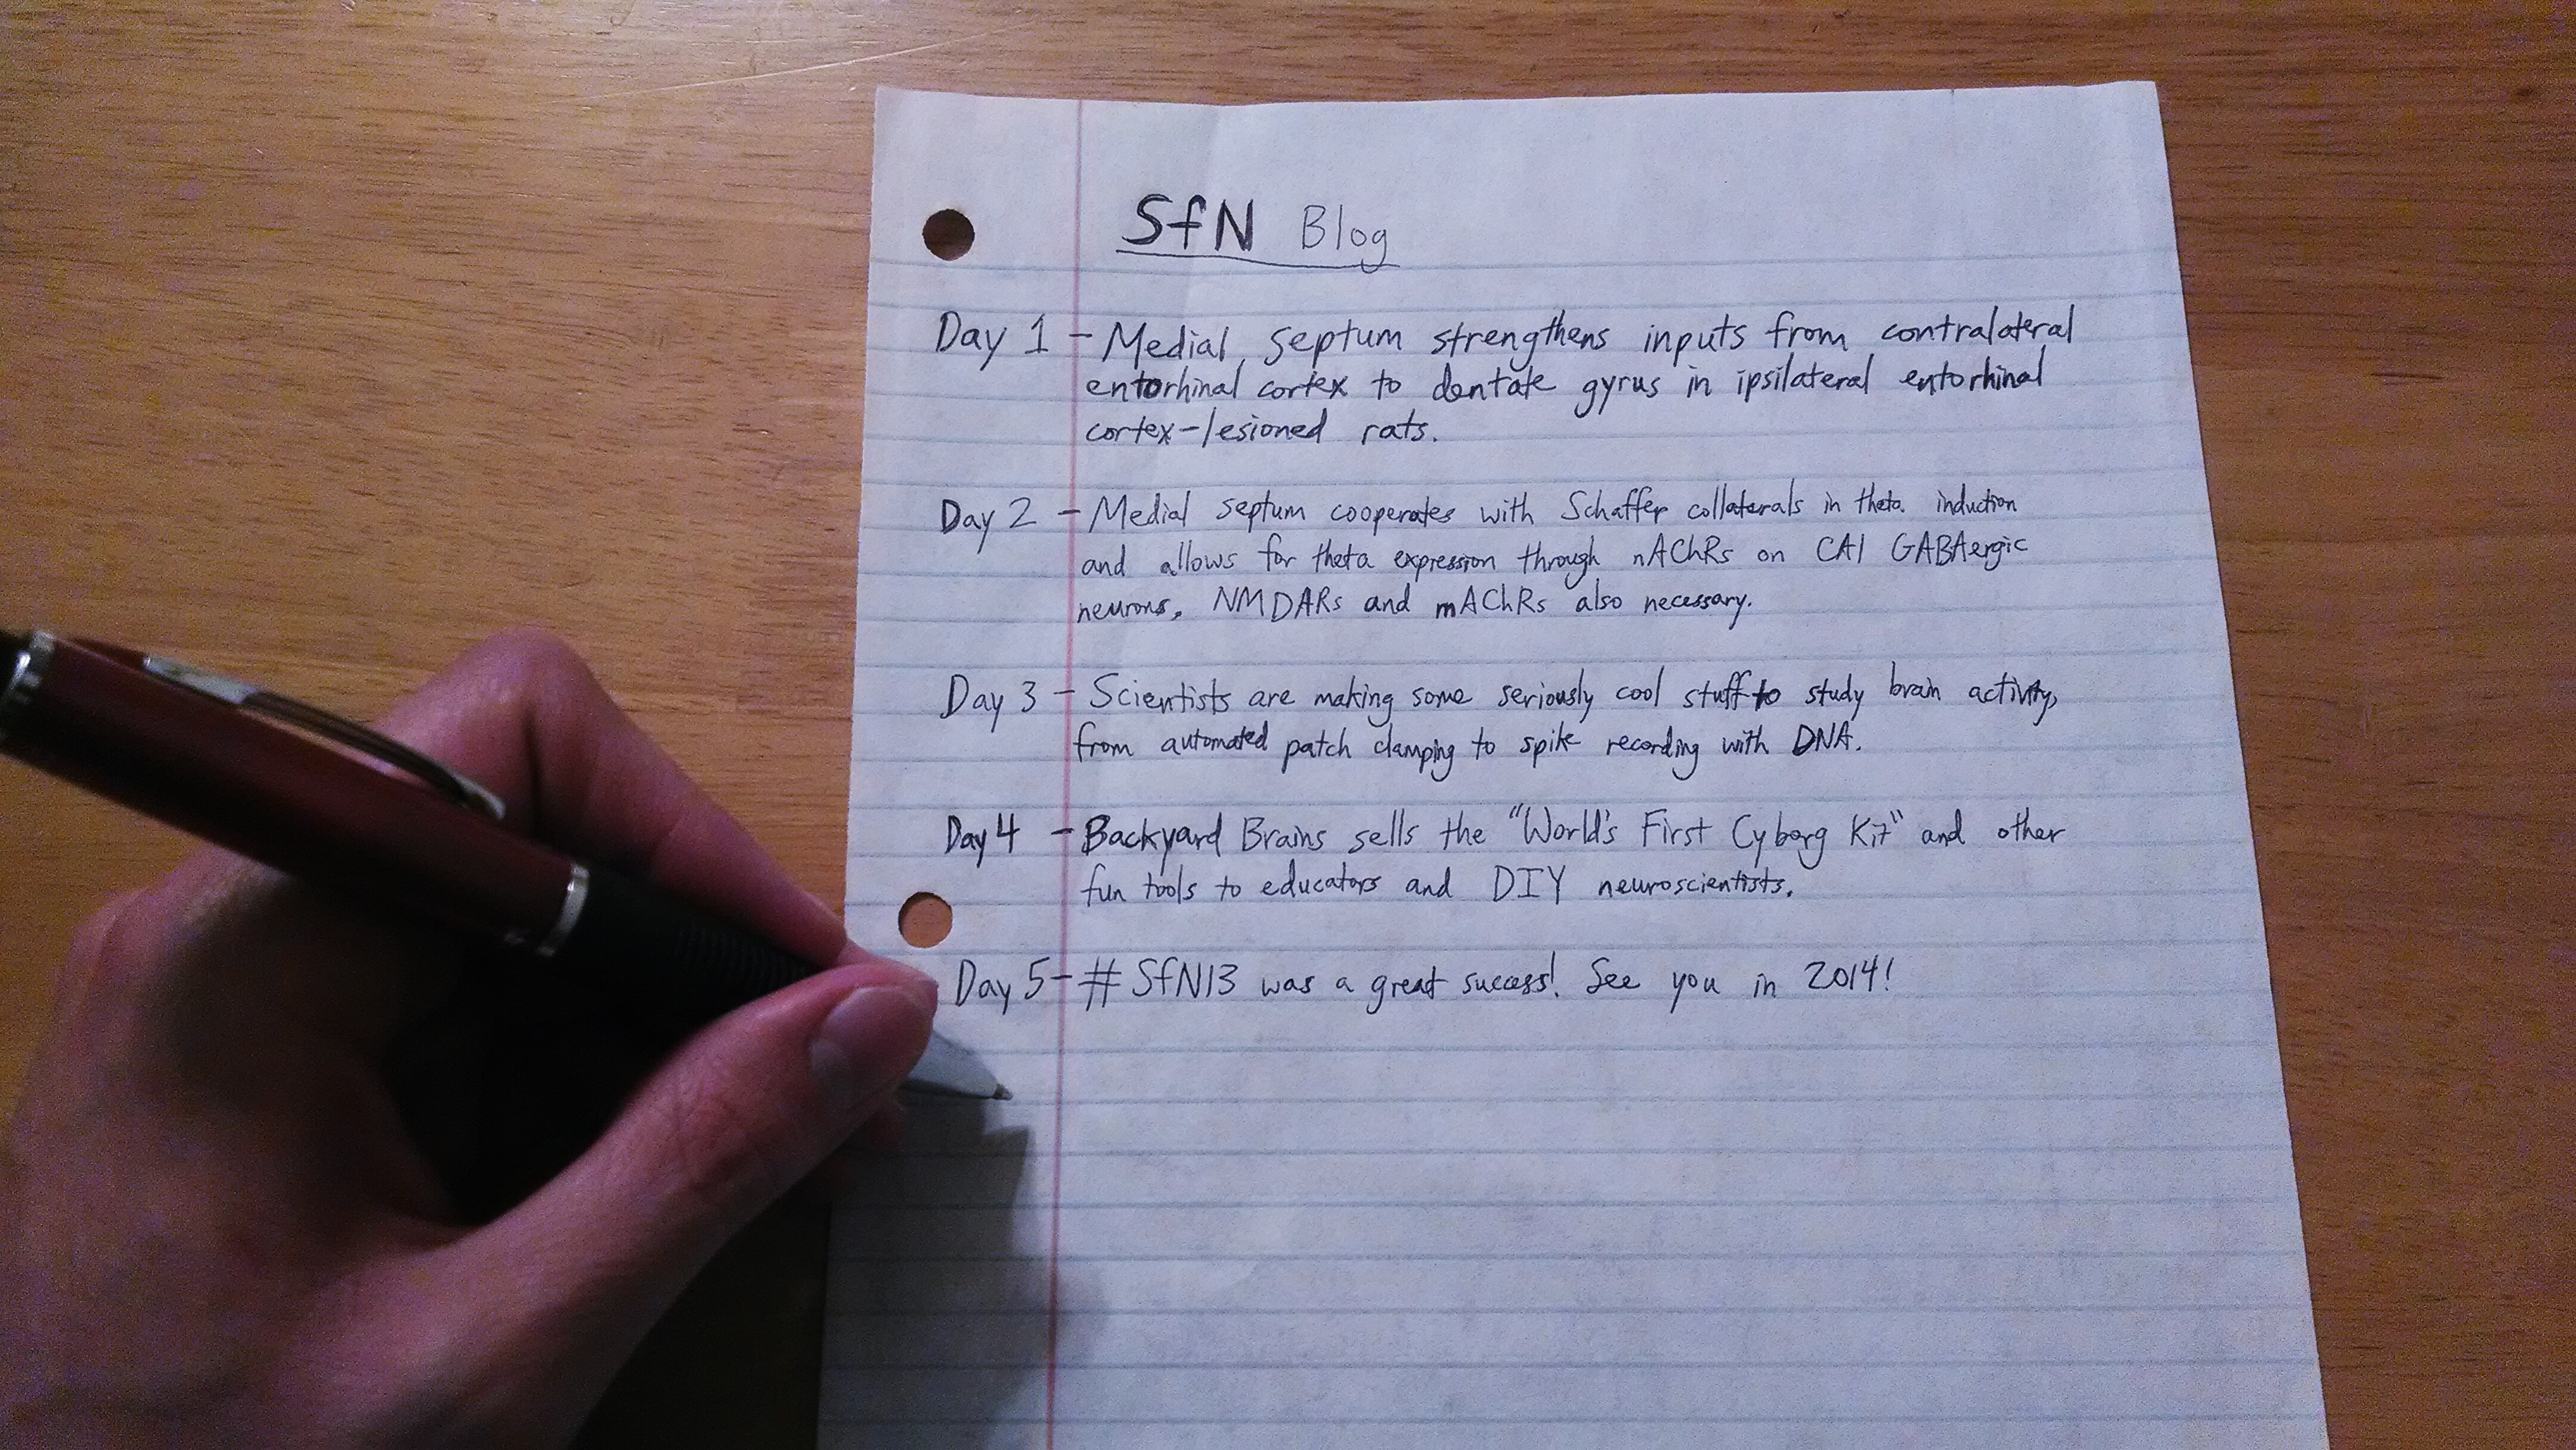 SfN Blog
Day 1 - Medial septum strengthens inputs from contralateral
entorhinal cortex to dentate gyrus in ipsilateral entorhinal
cortex-lesioned rats.
Day 2 - Medial septum cooperates with Schaffer collaterals in theta induction
and allows for theta expression through nAChRs on CA1 GABAergic
neurons, NMDARs and mAChRs also necessary.
Day 3 - Scientists are making some seriously cool stuff to study brain activity,
from automated patch clamping to spike recording with DNA.
Day 4 - Backyard Brains sells the "World's First Cyborg Kit" and other
fun tools to educators and DIY neuroscientists.
Day 5 - #SfN13 was a great success! See you in 2014!